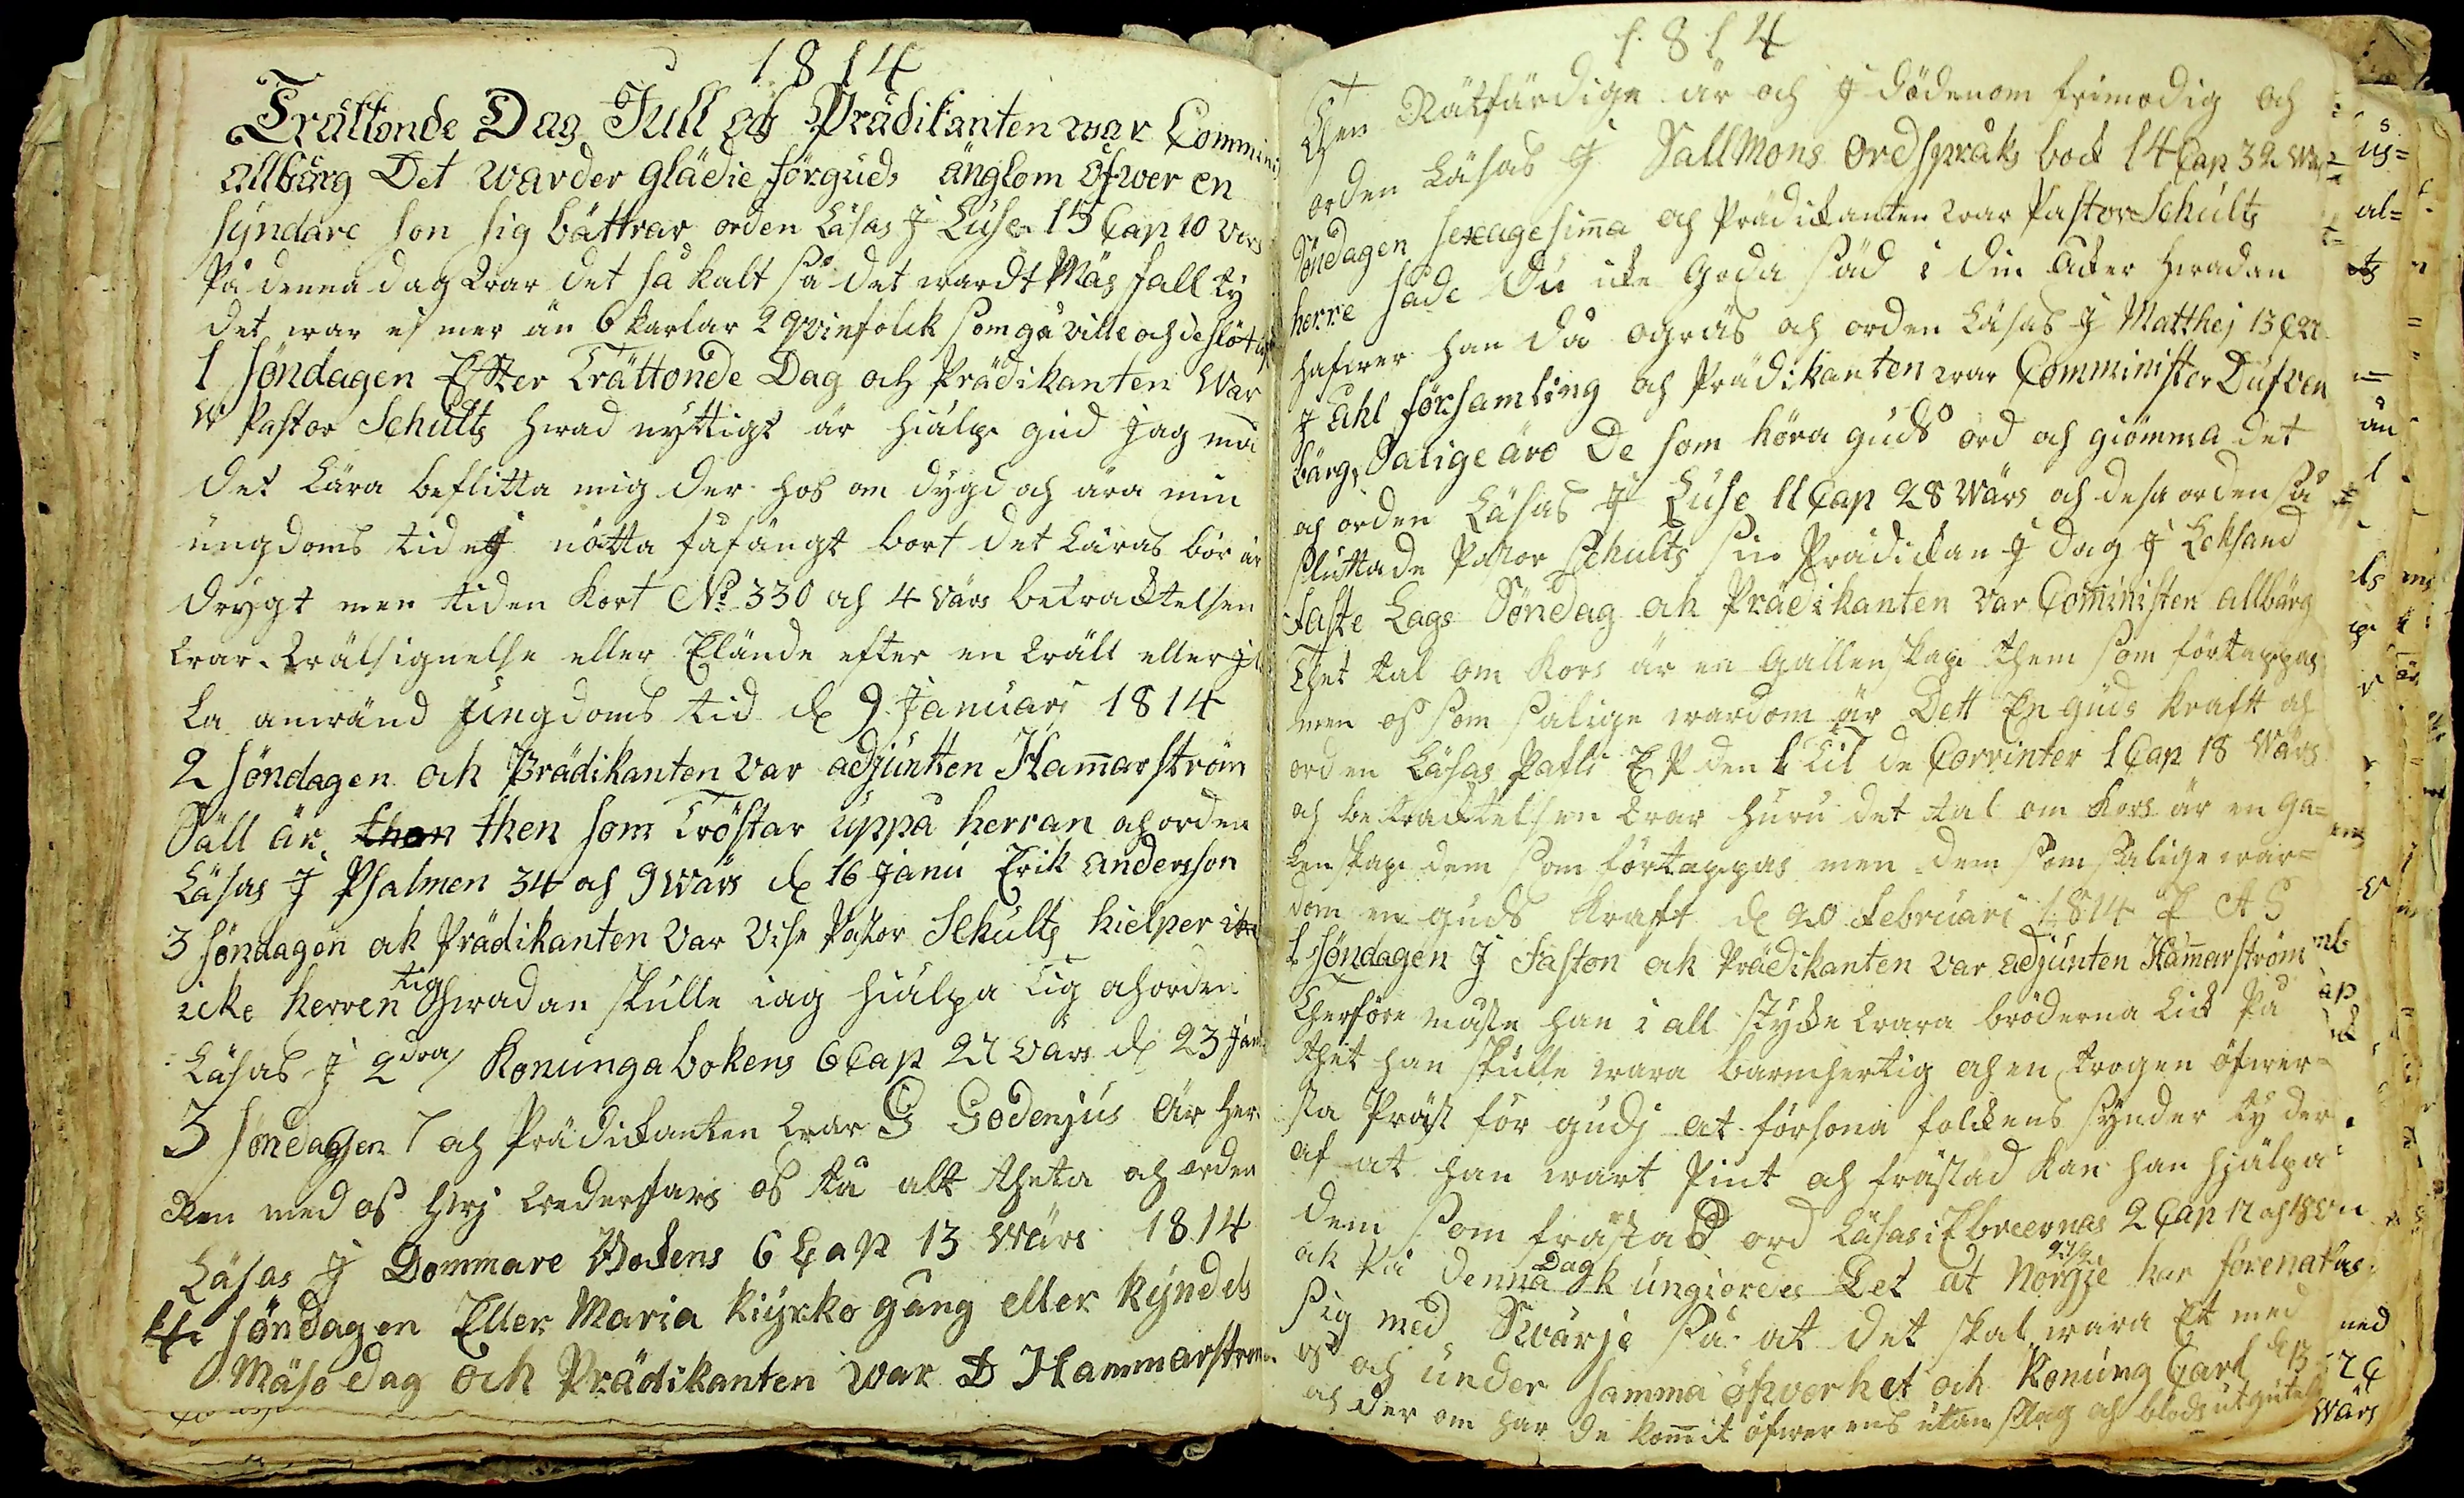 1814
Trättonde Dag Jull och Prädikanten war Comminis
allbärg Det warder glädie för guds änglom öfwer en
syndare son sig bättrar orden Läsas J Luse 15 Cap 10 vers
På denna dag war det så kalt så det wardt Mäs fall ty
det war ej mer än 6 karlar 2 qvinfolck som gå ville och de slöt
1 söndagen Effter Trättonde Dag och Prädikanten War
W Pastor Schults hwad nyttigt är hielp gud jag må
det Lära beflitta mig der hos om dygd och ära min
ungdoms tid ej nötta fåfängt bort det Läras bör är
drygt men tiden kort No 330 och 4 värs betracktelsen
war wälsignelse eller Elände efter en wäll eller jl
la anwänd ungdoms tid d 9 Januarj 1814
2 söndagen och Prädikanten var adjuntten Hamarström
Säll är then som Tröstar uppå herran och orden
Läsas J Psalmen 34 och 9 wärs d 16 janu Erik andersson
3 söndagen ock Prädikanten var vise Pastor Schults hielper
icke herren tig hwadan skulle iag hiälpa tig och orden
Läsas J 2dra Konungabokens 6 Cap 27 värs d 23 Jan
3 söndagen och Prädickanten war G Godenjus är her
ren med oss hwj wederfars oss tå alt theta och orden
Läsas J Dommare Bokens 6 Cap 13 wärs 1814
4 söndagen Eller Maria kiyrko gång eller kyndels
Mäso dag och Prädikanten war D Hammarstrom
1814
Then Rätfärdige är och J dödenom frimodig och
orden Läsas J SallMons ordspråks bock 14 Cap 32 wärs
Söndagen sexagesima och Prädickanten war Pastor Schults
herre såde Du icke goda säd i din åcker hwadan
hafwer han då ogräs och orden Läsas J Matthej 13 C 27
J åhl församling och Prädikanten war Comminister Dufven
bärg, Salige äro De som höra guds ord och giömma det
och orden Läsas J Luse 11 Cap 28 wärs och desa orden så
sluttade Pastor Schults sin Prädickan J dag J Leksand
Faste Lags Söndag och Prädikanten var Coministen allbärg
Thet tal om kors är en gallenskap them som förtappas
men oss som salige wardom är Dett En guds krafft och
orden Läsas Palli E P den 1 Til de Corrinter 1 Cap 18 wärs
och betracktelsen war huru det tal om kors är en ga=
lenskap dem som förtappas men dem som salige war=
dom en guds kraft d 20 Februari 1814 E A S
1 söndagen J Faston ock Prädikanten var adjunten Hamarström
Therföre måste han i all stycke wara bröderna lick På
thet han skulle wara barmhertig och en trogen öfwer=
sta Präst för gudj at försona folckens synder ty der
af at han wart Pint och frästad kan han hjälpa
dem som fräsTad ord Läsas i Ebreernas 2 Cap 17 och 18 v
ok På denna Dag kungiordes Det at Norgje har förenat
sig med Swärje så at det skal wara Et med
oss och under samma öfverhet och Konung Carl d 13
och der om har de komit öfwerens utan slag och blods utgutel